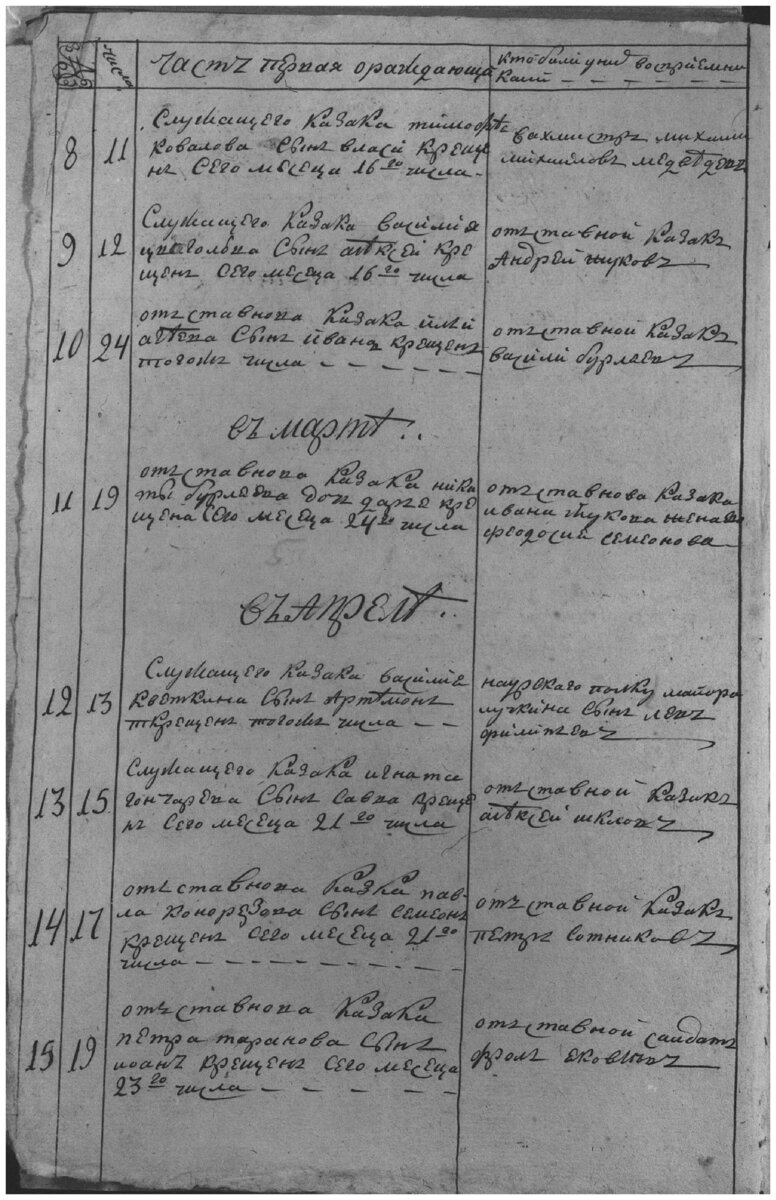 числа
часть первая ораждающи
кто были у них восприемни
ками
8 11 Служащего казака тимофѣ
ковалова сынъ власий креще
нъ сего месеца 16го числа
вахмистръ михаил
михаиловъ медведевъ
9 12 Служащего казака василия
сынъ алѣксей кре
щенъ сего месеца 16го числа
отъставной казакъ
Андрей жуковъ
10 24 отъставнова казака илии
сынъ иванъ крещенъ
тогожъ числа
отъставной казакъ
васили бурлаевъ
въ мартѣ
11 19 отъставнова казака ники
ты бурлаева доч даре кре
щена сего месеца 24го числа
отъставнова казака
ивана жукова жена
феодосия семеонова
въ Апрелѣ
12 13 Служащего казака василия
кветкина сынъ Артѣмонъ
крещенъ тогожъ числа
наурскаго полку майора
лучкина сынъ левъ
филипевъ
13 15 Служащего казака игната
гончарева сынъ савва креще
нъ сего месеца 21го числа
отъставной казакъ
алѣксей шкловъ
14 17 отъставнова казка пав
ла конорезова сынъ семеонъ
крещенъ сего месеца 21го
числа
отъставной казакъ
петръ сотниковъ
15 19 отъставнова казака
петра таранова сынъ
иоанъ крещенъ сего месеца
23го числа
отъставной салдатъ
фролъ